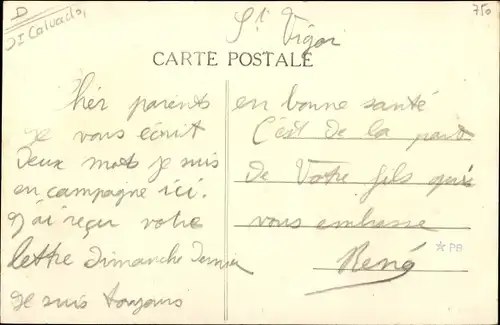 D
DI Calvados
750
St Vigor
CARTE POSTALE
Chér parents
je vous écrit
Deux mots je suis
en campagne ici.
j'ai reçu votre
lettre dimanche Dernier
je suis toujours
en bonne santé
C'est de la part
de Votre fils qui
vous embrasse
René
*PB